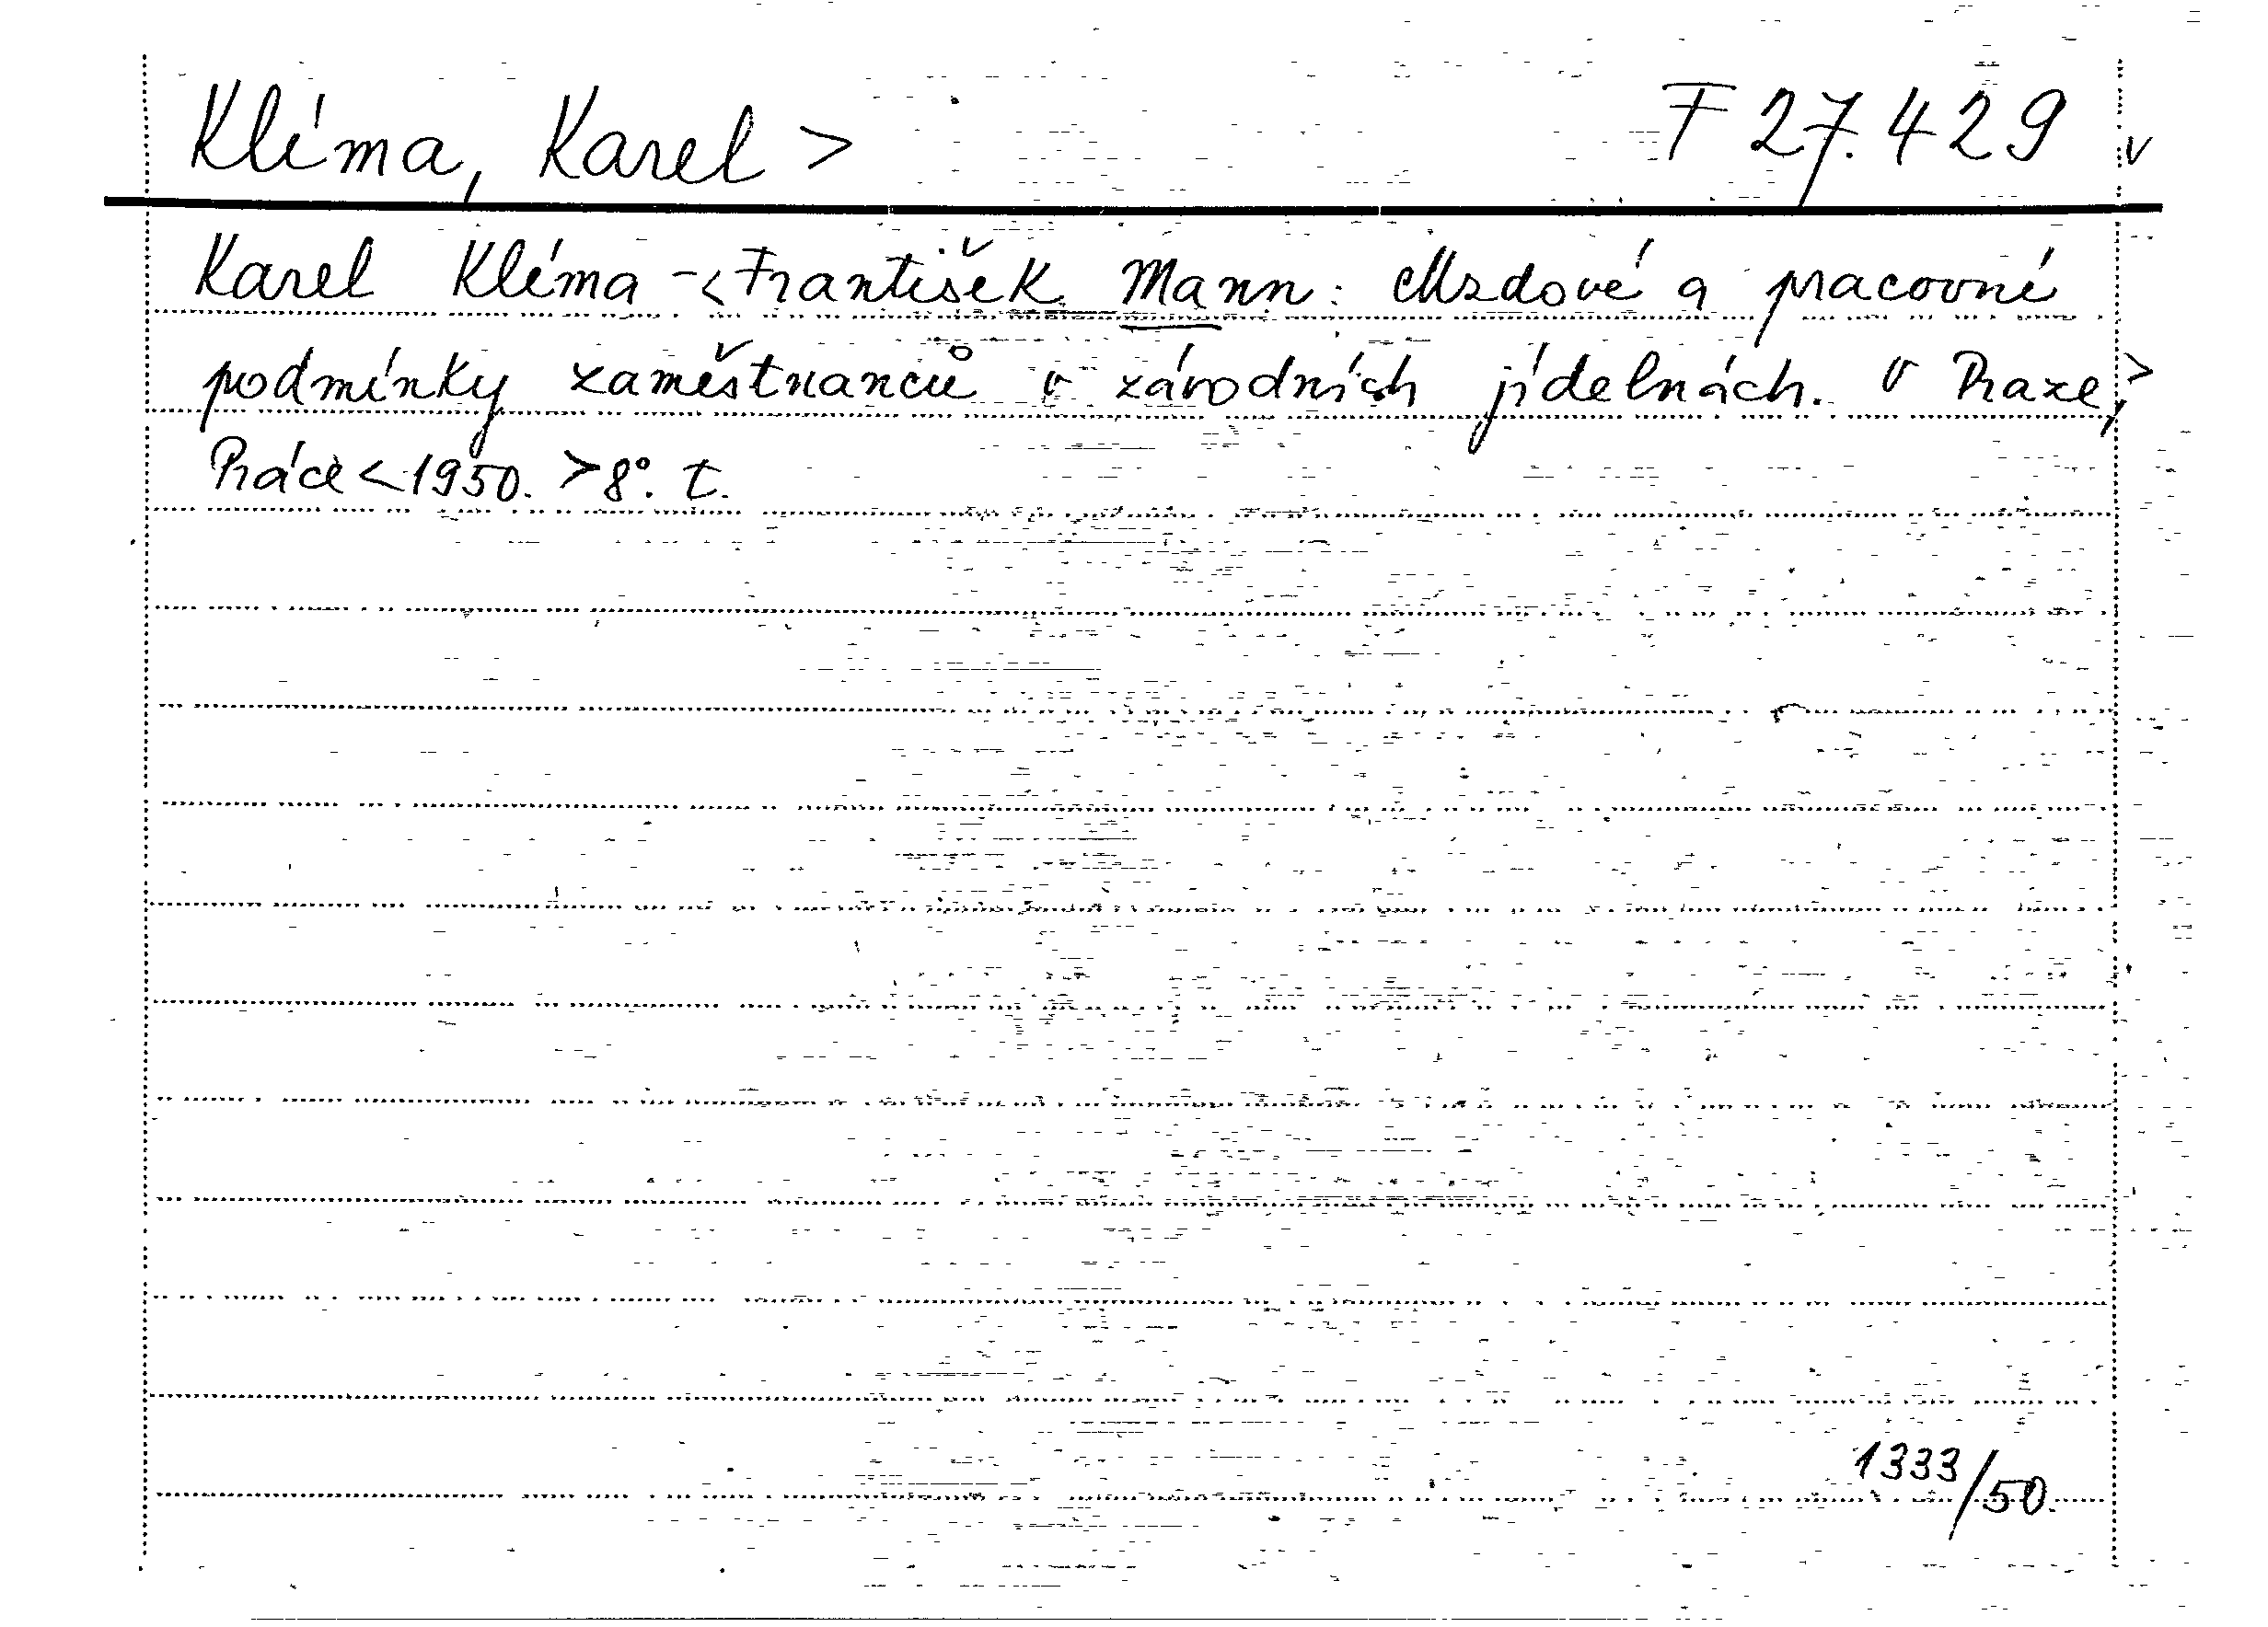 Klíma, Karel > F 27.429 v
Karel Klíma - <František Mann: Mzdové a pracovní
podmínky zaměstnanců v závodních jídelnách. V Praze, >
Práce <1950. >8°. t.
1333/50.